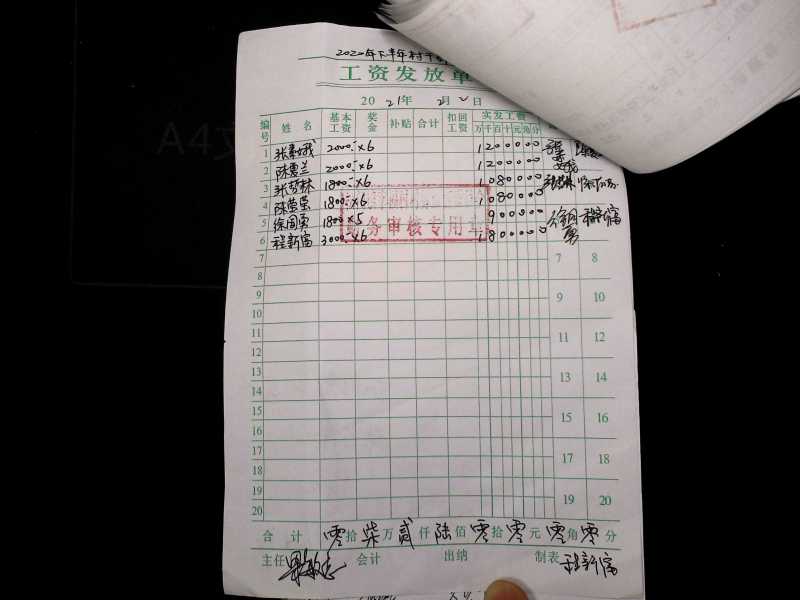 2020年下半年村干
工资发放单
2021年 2月 日
编号 姓名 基本工资 奖金 补贴 合计 扣回工资 实发工资
万 千 百 十 元 角 分
1 张素娥 2000.-×6 1 2 0 0 0 0 0
2 陈云兰 2000.-×6 1 2 0 0 0 0 0
3 张哲林 1800.-×6 1 0 8 0 0 0 0
4 陈莹莹 1800.-×6 1 0 8 0 0 0 0
5 徐国勇 1800×5 9 0 0 0 0 0
6 程新富 3000.-×6 1 8 0 0 0 0 0
务审核专用章
7 7 8
8
9 9 10
10
11 11 12
12
13 13 14
14
15 15 16
16
17 17 18
18
19 19 20
20
合计 零拾柒万贰仟陆佰零拾零元零角零分
主任 会计 出纳 制表 程新富